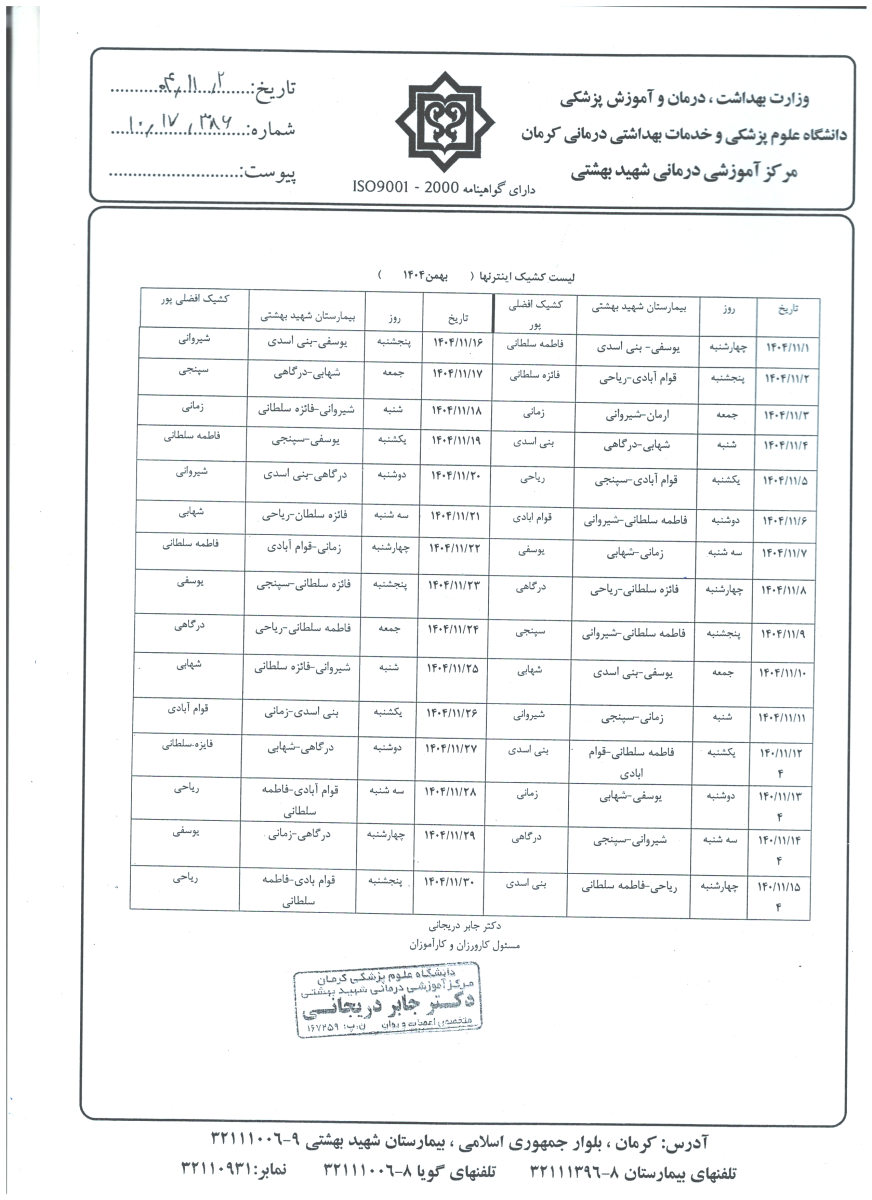 وزارت بهداشت ، درمان و آموزش پزشکی
دانشگاه علوم پزشکی و خدمات بهداشتی درمانی کرمان
مرکز آموزشی درمانی شهید بهشتی
دارای گواهینامه ISO9001 - 2000
تاریخ: ۰۴/۱۱/۲
شماره: ۱۰/۱۷/۳۸۶
پیوست:
لیست کشیک اینترنها ( بهمن۱۴۰۴ )
تاریخ | روز | بیمارستان شهید بهشتی | کشیک افضلی پور | تاریخ | روز | بیمارستان شهید بهشتی | کشیک افضلی پور
۱۴۰۴/۱۱/۱ | چهارشنبه | یوسفی- بنی اسدی | فاطمه سلطانی | ۱۴۰۴/۱۱/۱۶ | پنجشنبه | یوسفی-بنی اسدی | شیروانی
۱۴۰۴/۱۱/۲ | پنجشنبه | قوام آبادی-ریاحی | فائزه سلطانی | ۱۴۰۴/۱۱/۱۷ | جمعه | شهابی-درگاهی | سپنجی
۱۴۰۴/۱۱/۳ | جمعه | ارمان-شیروانی | زمانی | ۱۴۰۴/۱۱/۱۸ | شنبه | شیروانی-فائزه سلطانی | زمانی
۱۴۰۴/۱۱/۴ | شنبه | شهابی-درگاهی | بنی اسدی | ۱۴۰۴/۱۱/۱۹ | یکشنبه | یوسفی-سپنجی | فاطمه سلطانی
۱۴۰۴/۱۱/۵ | یکشنبه | قوام آبادی-سپنجی | ریاحی | ۱۴۰۴/۱۱/۲۰ | دوشنبه | درگاهی-بنی اسدی | شیروانی
۱۴۰۴/۱۱/۶ | دوشنبه | فاطمه سلطانی-شیروانی | قوام ابادی | ۱۴۰۴/۱۱/۲۱ | سه شنبه | فائزه سلطان-ریاحی | شهابی
۱۴۰۴/۱۱/۷ | سه شنبه | زمانی-شهابی | یوسفی | ۱۴۰۴/۱۱/۲۲ | چهارشنبه | زمانی-قوام آبادی | فاطمه سلطانی
۱۴۰۴/۱۱/۸ | چهارشنبه | فائزه سلطانی-ریاحی | درگاهی | ۱۴۰۴/۱۱/۲۳ | پنجشنبه | فائزه سلطانی-سپنجی | یوسفی
۱۴۰۴/۱۱/۹ | پنجشنبه | فاطمه سلطانی-شیروانی | سپنجی | ۱۴۰۴/۱۱/۲۴ | جمعه | فاطمه سلطانی-ریاحی | درگاهی
۱۴۰۴/۱۱/۱۰ | جمعه | یوسفی-بنی اسدی | شهابی | ۱۴۰۴/۱۱/۲۵ | شنبه | شیروانی-فائزه سلطانی | شهابی
۱۴۰۴/۱۱/۱۱ | شنبه | زمانی-سپنجی | شیروانی | ۱۴۰۴/۱۱/۲۶ | یکشنبه | بنی اسدی-زمانی | قوام آبادی
۱۴۰/۱۱/۱۲ ۴ | یکشنبه | فاطمه سلطانی-قوام ابادی | بنی اسدی | ۱۴۰۴/۱۱/۲۷ | دوشنبه | درگاهی-شهابی | فایزه سلطانی
۱۴۰/۱۱/۱۳ ۴ | دوشنبه | یوسفی-شهابی | زمانی | ۱۴۰۴/۱۱/۲۸ | سه شنبه | قوام آبادی-فاطمه سلطانی | ریاحی
۱۴۰/۱۱/۱۴ ۴ | سه شنبه | شیروانی-سپنجی | درگاهی | ۱۴۰۴/۱۱/۲۹ | چهارشنبه | درگاهی-زمانی | یوسفی
۱۴۰/۱۱/۱۵ ۴ | چهارشنبه | ریاحی-فاطمه سلطانی | بنی اسدی | ۱۴۰۴/۱۱/۳۰ | پنجشنبه | قوام بادی-فاطمه سلطانی | ریاحی
دکتر جابر دریجانی
مسئول کارورزان و کارآموزان
دانشگاه علوم پزشکی کرمان
مرکز آموزشی درمانی شهید بهشتی
دکتر جابر دریجانی
متخصص اعصاب و روان ن.پ: ۱۶۷۲۵۹
آدرس: کرمان ، بلوار جمهوری اسلامی ، بیمارستان شهید بهشتی ۹-۳۲۱۱۱۰۰۶
تلفنهای بیمارستان ۸-۳۲۱۱۱۳۹۶ تلفنهای گویا ۸-۳۲۱۱۱۰۰۶ نمابر: ۳۲۱۱۰۹۳۱